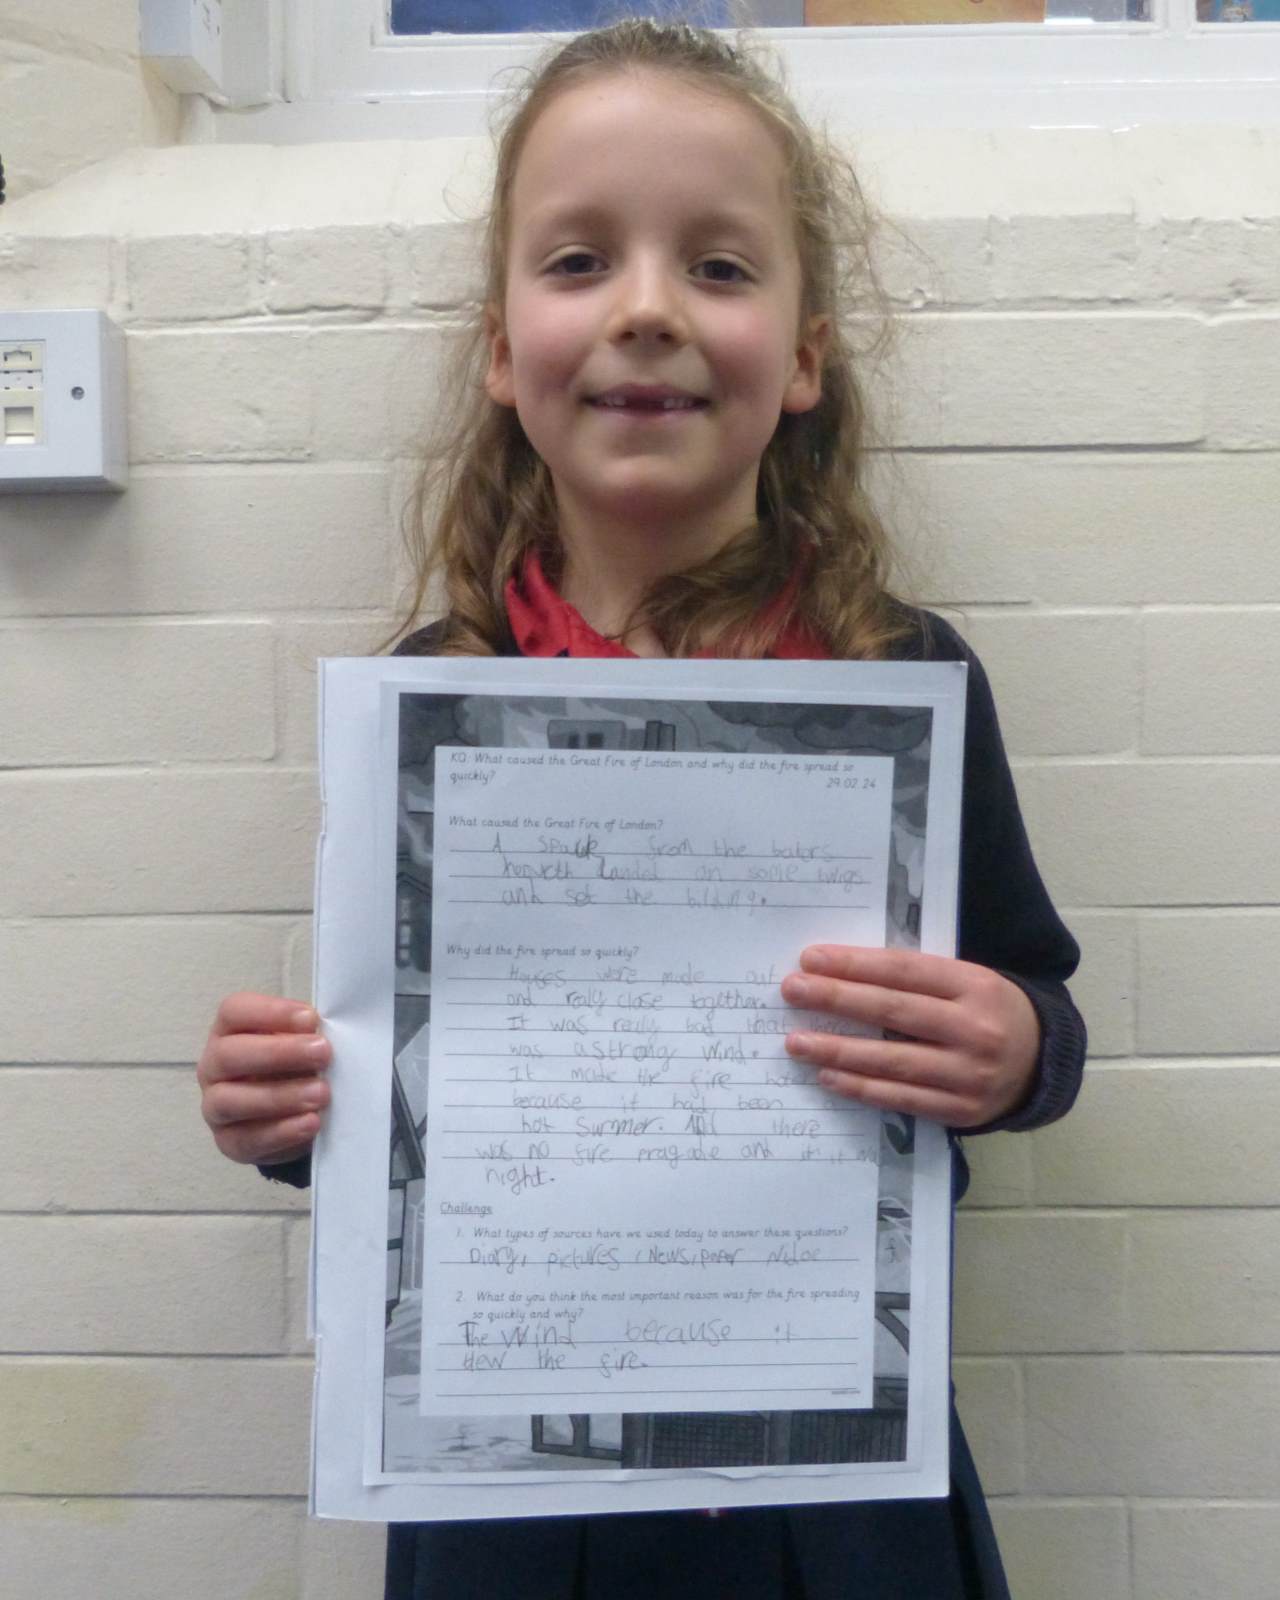 KQ: What caused the Great Fire of London and why did the fire spread so
quickly?
29.02.24
What caused the Great Fire of London?
A spark from the
landed on some twigs
and set the bilding.
Why did the fire spread so quickly?
Houses were made out
and realy close together.
It was really bad that there
was a strong wind.
It made the fire
because it had been
hot summer. And there
was no fire and it
night.
Challenge
1. What types of sources have we used today to answer these questions?
Diary, pictures, News, paper
2. What do you think the most important reason was for the fire spreading
so quickly and why?
The wind because it
blew the fire.